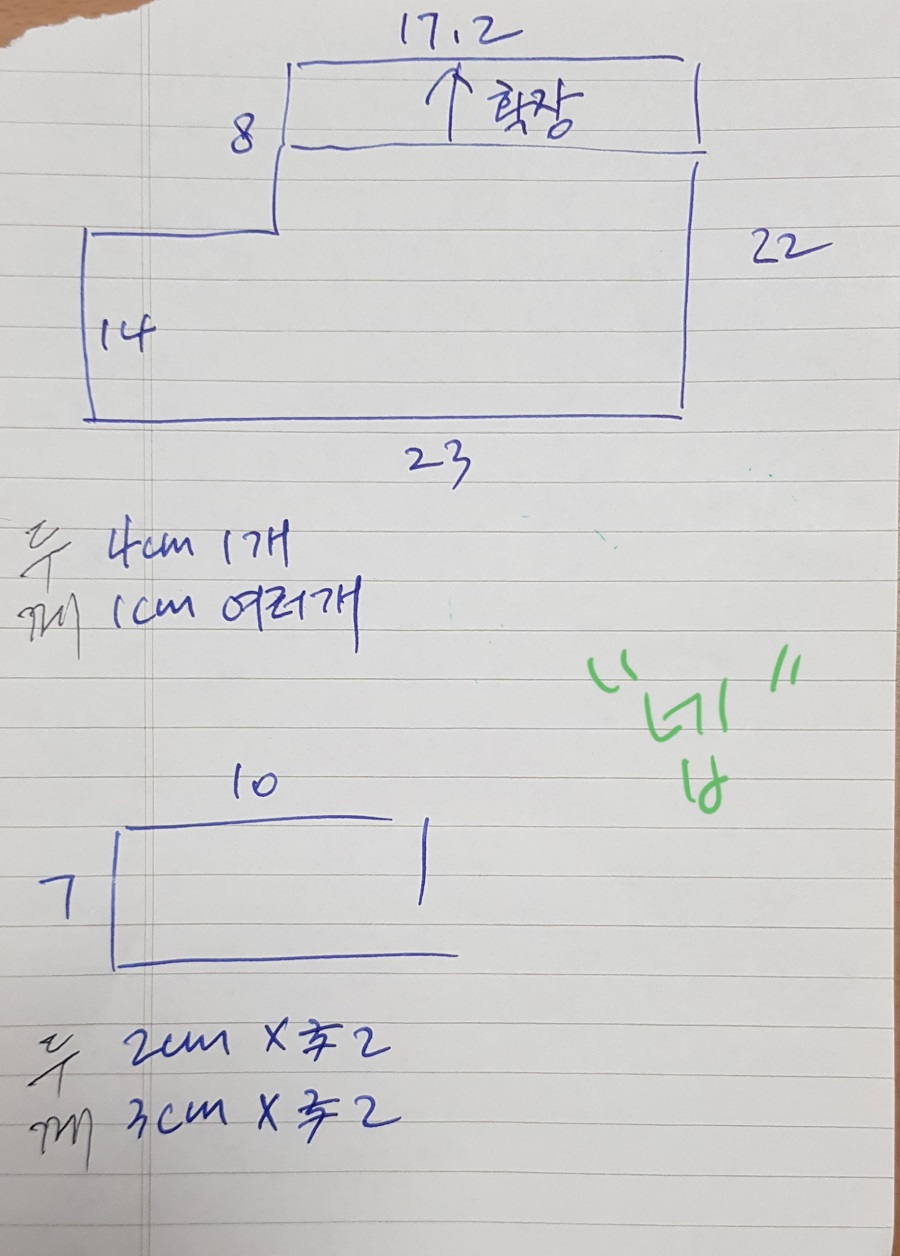 17.2
8
확장
22
14
23
두 4cm 1개
께 1cm 여러개
"네"
넵
10
7
두 2cm X 추 2
께 3cm X 추 2